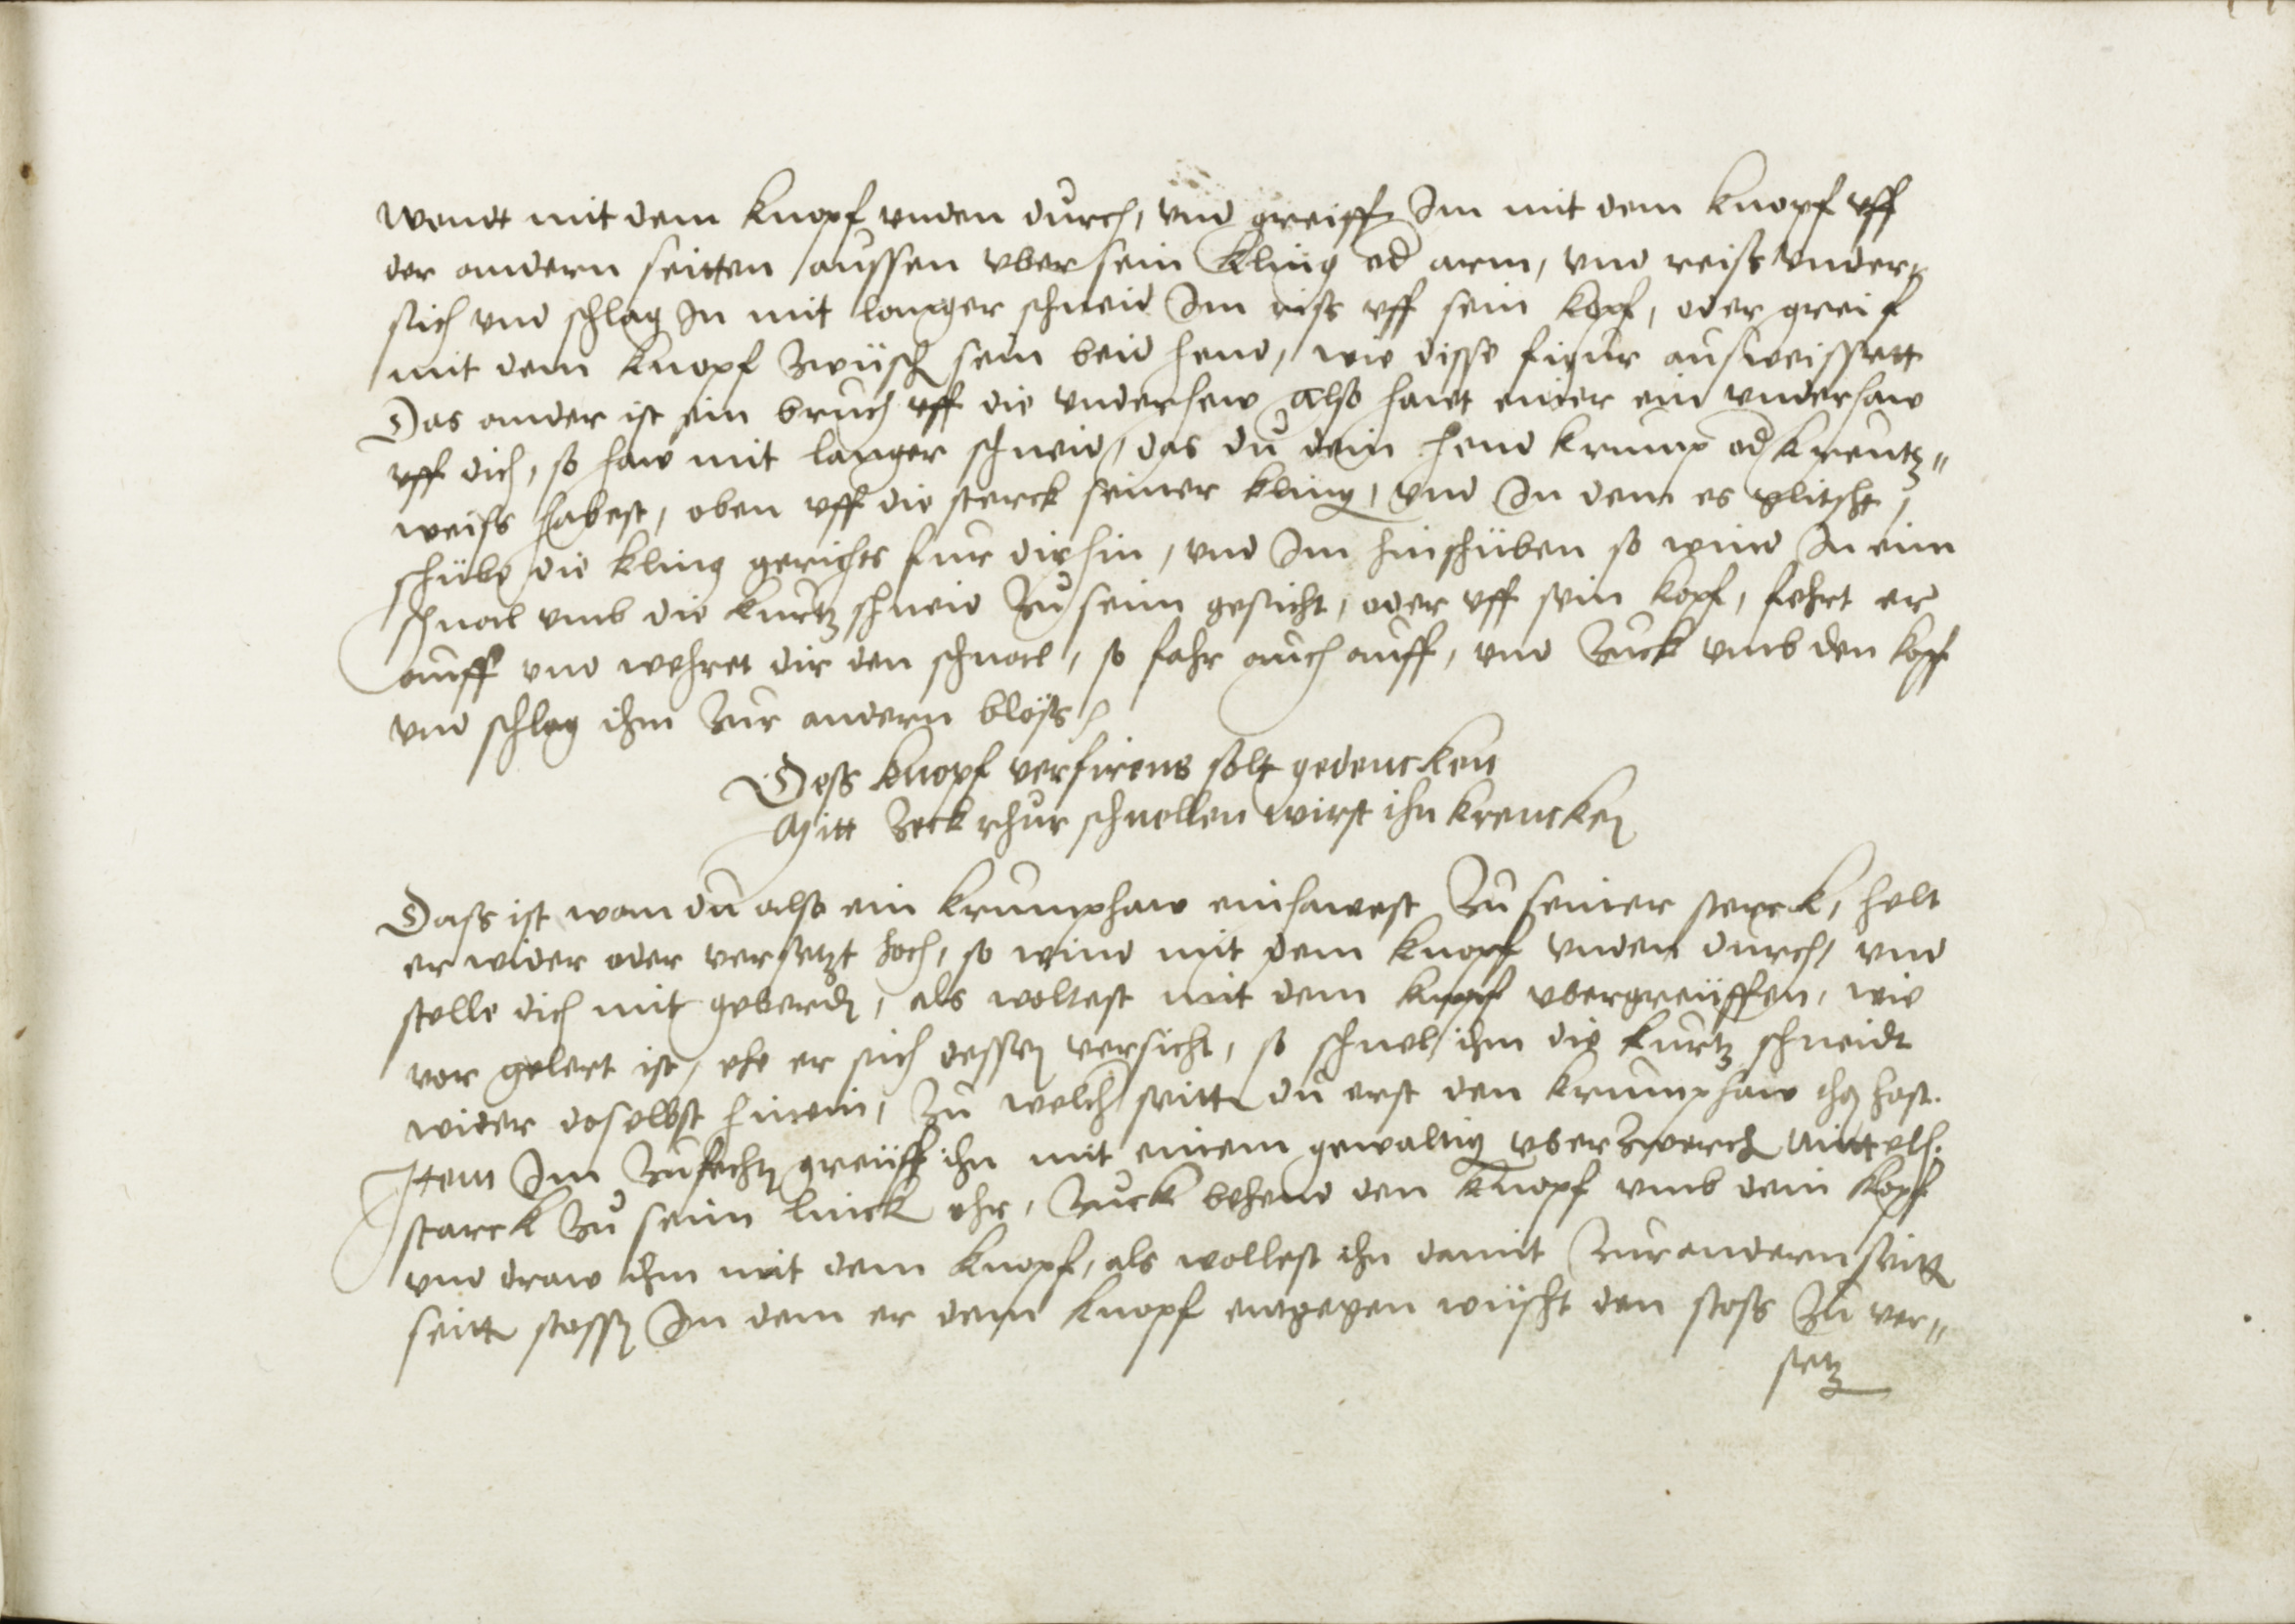 wendt mit dem knopf vnden durch, vnd greiff Im mit dem knopf vff
der andern seitten aussen vber sein kling od arm, vnd reiss vnder
sich vnd schlag In mit langer schneid Im riss vff sein kopf, oder greif
mit dem knopf zwüsch sein beid hend, wie disse figur ausweissett
Das ander ist ein bruch vff die vnderhew also hawt einer ein vnderhaw
vff dich, so haw mit langer schneid, das du dein hend krump od kreutz"
weiss habest, oben vff die sterck seiner kling, vnd In dem es glitscht,
schübe die kling gerichts fur dir hin, vnd Im hinschüben so wind In ein
schnal vmb die kurtz schneid zu seim gesicht, oder vff sein kopf, fehrt er
auff vnd wehret dir den schnal, so fahr auch auff, vnd zuck vmb den kopf
vnd schlag ihm zur andern blöss
Dess knopf verfirens solt gedencken
Mitt zeckrhur schnellen wirst ihn krencken
Dass ist wan du also ein krumphaw einhawest zu seiner sterck, helt
er wider oder versetzt hoch, so wind mit dem knopf vnden durch, vnd
stelle dich mit geberden, als woltest mit dem knopf vbergreüffen, wie
vor gelert ist, ehe er sich dessen versicht, so schnel ihm die kurtz schneidt
wider doselbst hinein, zu welch seitten du erst den krumphaw than hast.
Item Im zufechten greüff ihn mit einem gewaltig vberzwerch mittelh.
starck zu seim linck ohr, zuck behend den knopf vmb dein kopf
vnd draw ihm mit dem knopf, als wollest ihn damit zur andern seitten
seitten stossen In dem er dem knopf entgegen wüscht den stoss zu ver"
setz